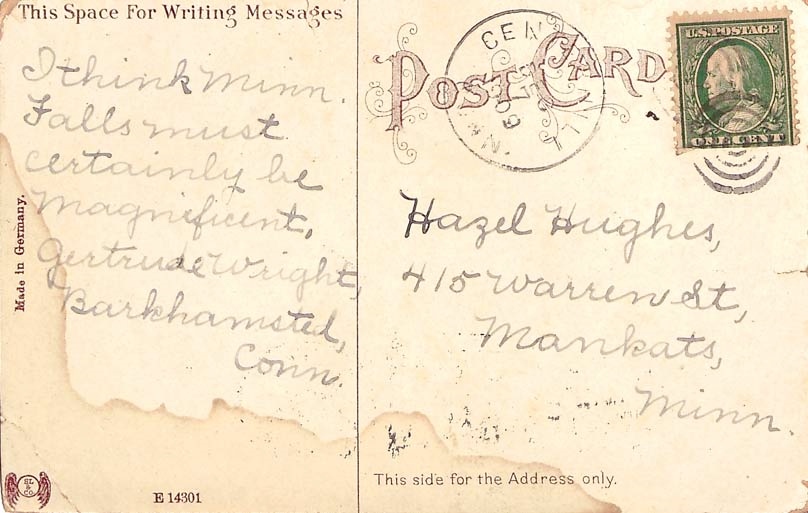 This Space For Writing Messages
I think Minn.
Falls must
certainly be
magnificent,
Gertrude Wright,
Barkhamsted,
Conn.
Made in Germany.
E 14301
POST CARD
U.S. POSTAGE
ONE CENT
Hazel Hughes,
415 Warren St,
Mankats,
Minn.
This side for the Address only.